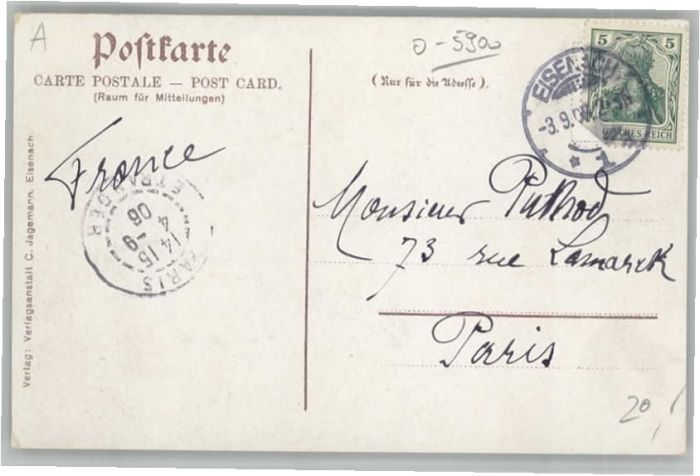 A
Postkarte
CARTE POSTALE — POST CARD.
(Raum für Mitteilungen)
D-5900
(Nur für die Adresse).
5 5
EISENACH
-3.9.06
* 1
REICH
France
PARIS
14 15
4 -9
06
ETRANGER
Monsieur
73 rue Lamarck
Paris
Verlag: Verlagsanstalt C. Jagemann, Eisenach.
20